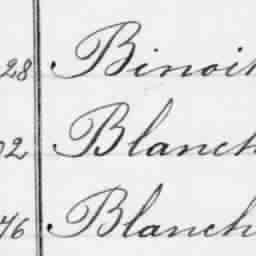 28 Binoit
02 Blanch
76 Blanch